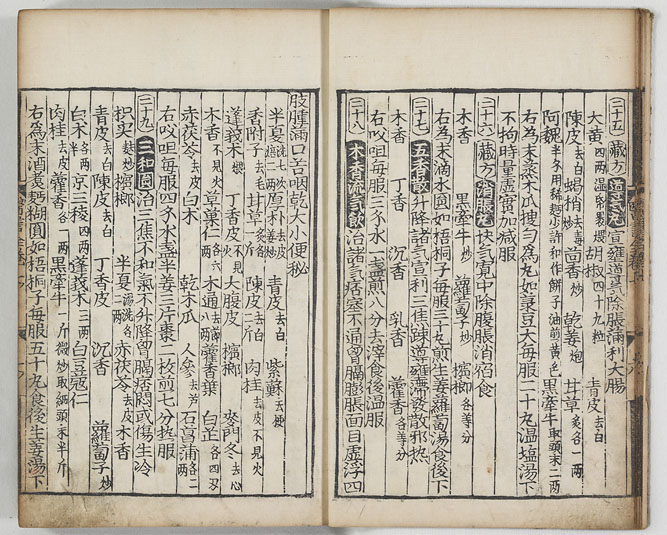 三十五 藏方 宣壅道氣除脹滿利大腸
大黃 胡椒四十九粒 青皮去白
陳皮去白 蝎梢去毒 茴香炒 乾姜炮 甘草炙各一兩
阿魏 黑牽牛取頭末二兩
右為末蒸木瓜搜勻為丸如菉豆大每服二十丸溫塩湯下
不拘時量虛實加減服
三十六 藏方 消脹丸 快氣寬中除腹脹消宿食
木香 黑牽牛炒 蘿蔔子炒 檳榔各等分
右為末滴水圓如梧桐子每服三十丸煎生姜蘿蔔湯食後下
三十七 五香散 升降諸氣宣利三焦疎導壅滯發散邪熱
木香 丁香 沉香 乳香 藿香各等分
右㕮咀每服三水一盞煎八分去滓食後溫服
三十八 木香流氣飲 治諸氣痞塞不通曾膈膨脹面目虛浮四
肢腫滿口苦咽乾大小便秘
半夏 厚朴 青皮去白 紫蘇去梗
香附子去毛 甘草 陳皮去白 肉桂去皮不見火
蓬莪朮煨 丁香皮不見火 大腹皮 檳榔 麥門冬去心
木香不見火 草菓仁 木通 藿香葉 白芷
赤茯苓去皮 白朮 乾木瓜 人參去芦 石菖蒲
右㕮咀每服四水盞半姜三片棗二枚煎七分热服
三十九 三和圓 治三焦不和氣不升降曾膈痞悶或傷生冷
枳实麩炒 檳榔 半夏 赤茯苓去皮 木香
青皮去白 陳皮去白 丁香皮 沉香 蘿蔔子炒
白朮各二兩 京三稜四兩 蓬莪朮三兩 白豆寇仁
肉桂去皮 藿香各一兩 黑牽牛一斤微炒取細頭末半斤
右為末酒煮麪糊圓如梧桐子每服五十丸食後生姜湯下